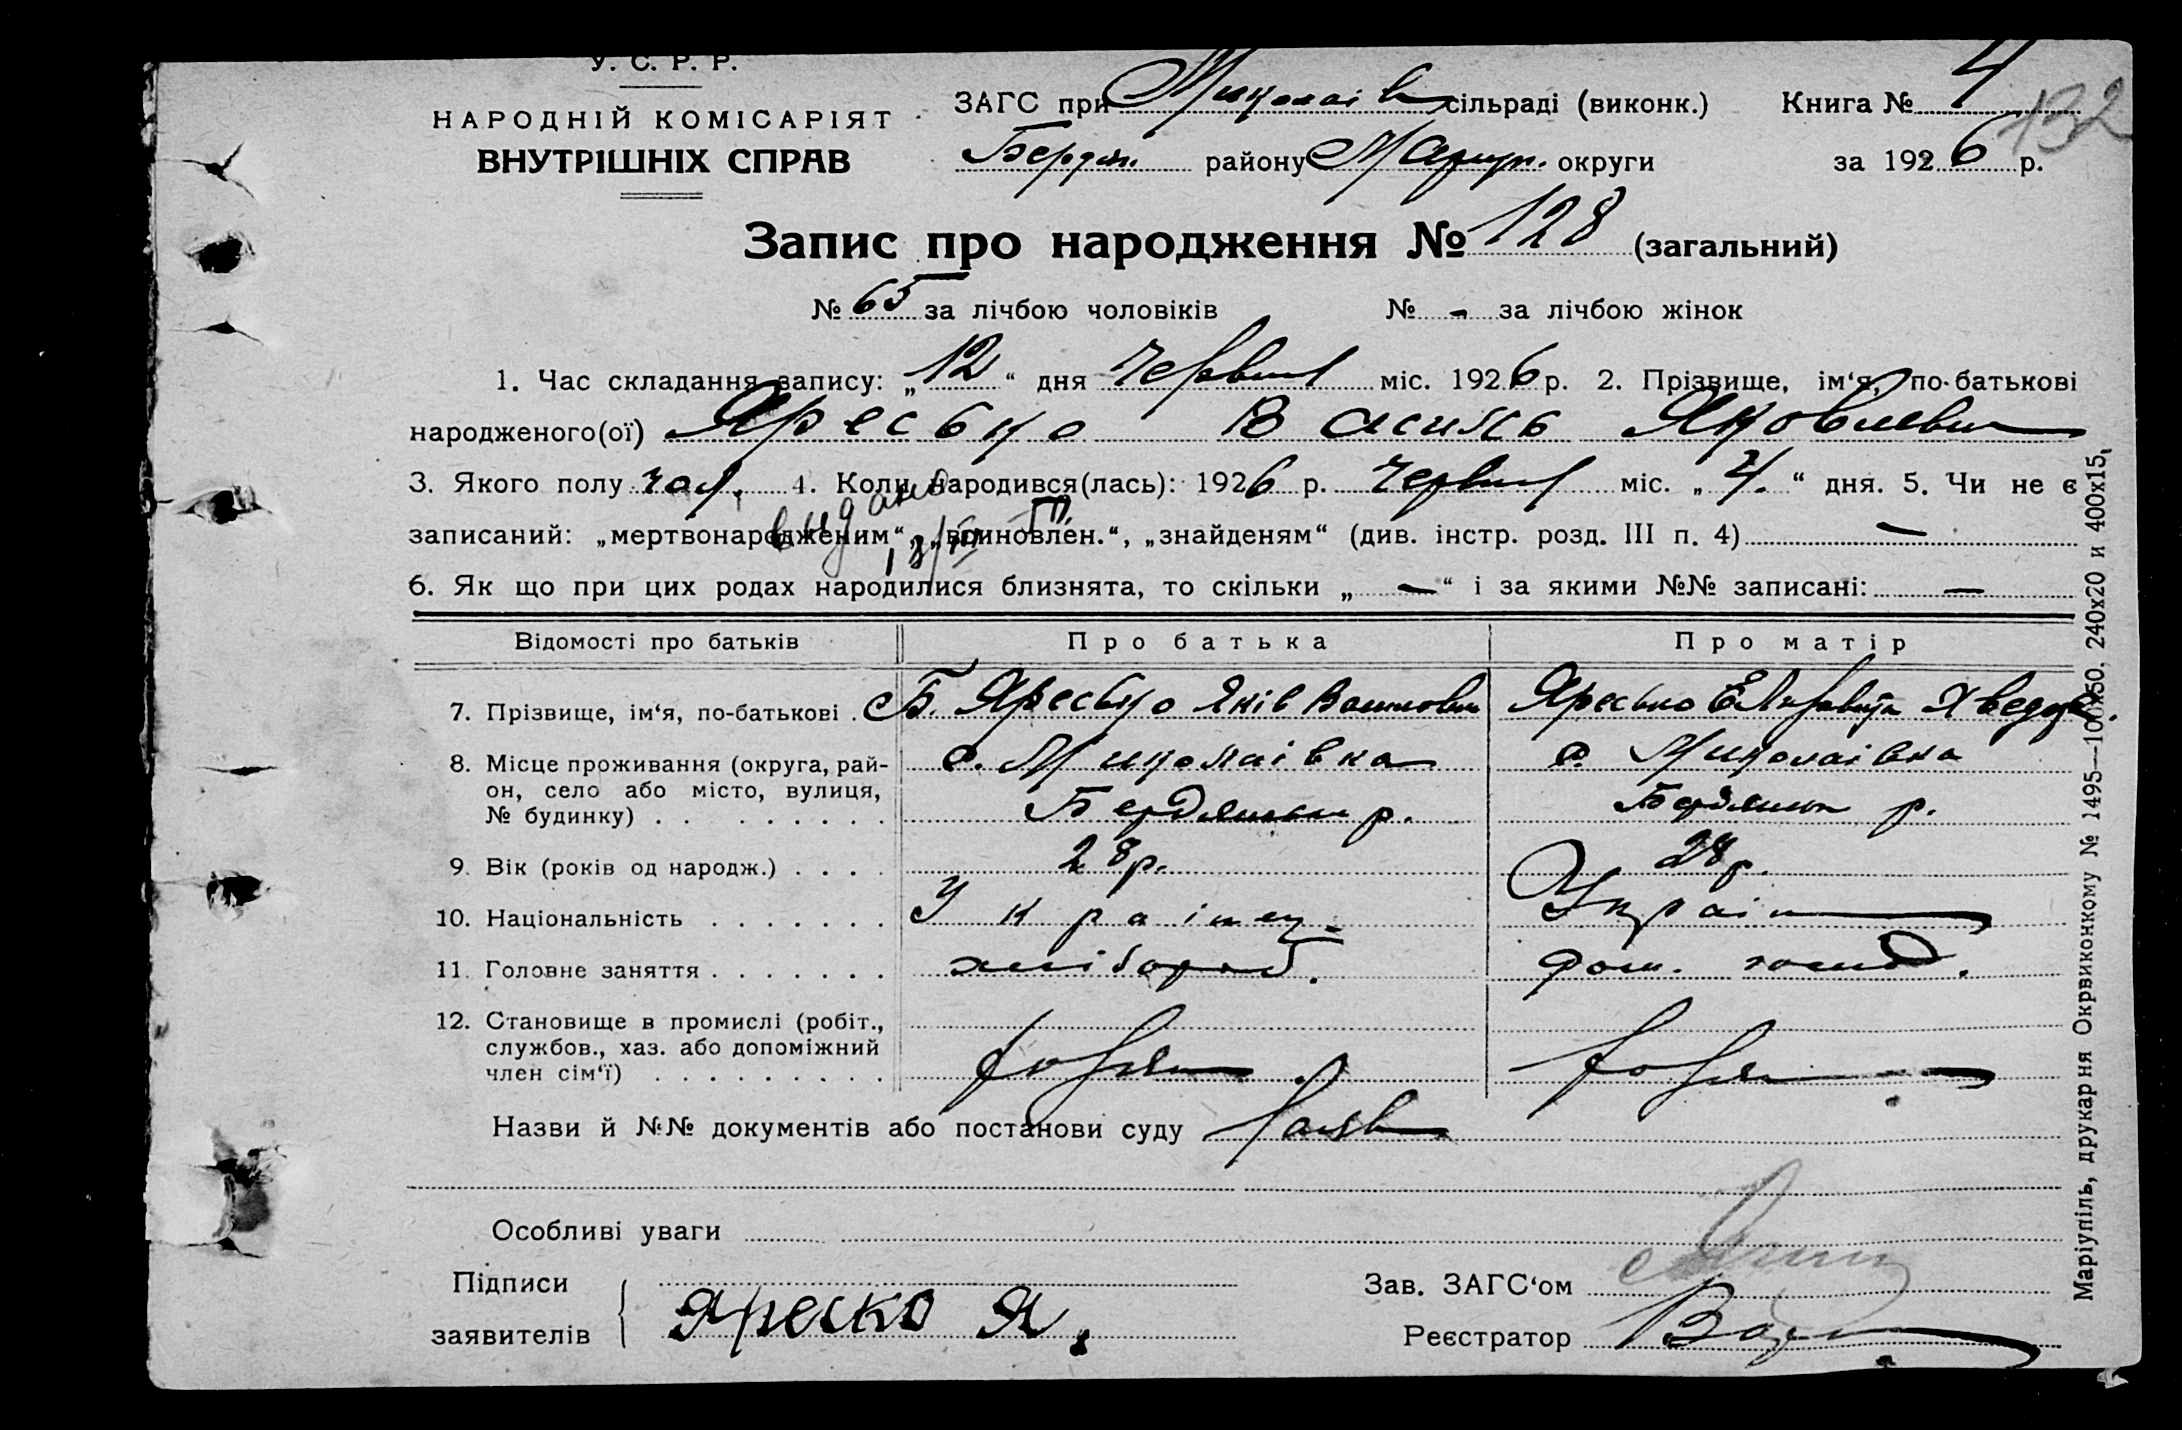 У. С. Р. Р.
НАРОДНІЙ КОМІСАРІЯТ
ВНУТРІШНІХ СПРАВ
ЗАГС при Миколаїв сільраді (виконк.) Книга № 4
132
Бердян. району Маріуп. округи за 1926 р.
Запис про народження № 128 (загальний)
№ 65 за лічбою чоловіків № - за лічбою жінок
1. Час складання запису: „12“ дня Червня міс. 1926 р. 2. Прізвище, ім‘я, по-батькові
народженого(ої) Яресько Василь Яковлевич
3. Якого полу чол. 4. Коли народився(лась): 1926 р. Червня міс. „4.“ дня. 5. Чи не є
видано
записаний: „мертвонародженим“, „вчиновлен.“, „знайденям“ (див. інстр. розд. III п. 4) —
6. Як що при цих родах народилися близнята, то скільки „—“ і за якими №№ записані: —
Відомості про батьків Про батька Про матір
7. Прізвище, ім‘я, по-батькові . Б. Яресько Яків Васильович Яресько Елизавета Хведор.
8. Місце проживання (округа, рай-
он, село або місто, вулиця,
№ будинку) . . . . . . . . .
с. Миколаівка
Бердянськ р.
с. Миколаівка
Бердянськ р.
9. Вік (років од народж.) . . . . 28 р. 28 р.
10. Національність . . . . . . . Украінец Украін
11. Головне заняття . . . . . . . хлібороб. дом. господ.
12. Становище в промислі (робіт.,
службов., хаз. або допоміжний
член сім‘ї) . . . . . . . . .
хозяін
хозяін
Назви й №№ документів або постанови суду Заяв
Особливі уваги
Підписи
заявителів
Яреско Я.
Зав. ЗАГС‘ом
Реєстратор
Маріупіль, друкарня Окрвиконкому № 1495—100x50, 240x20 и 400x15,